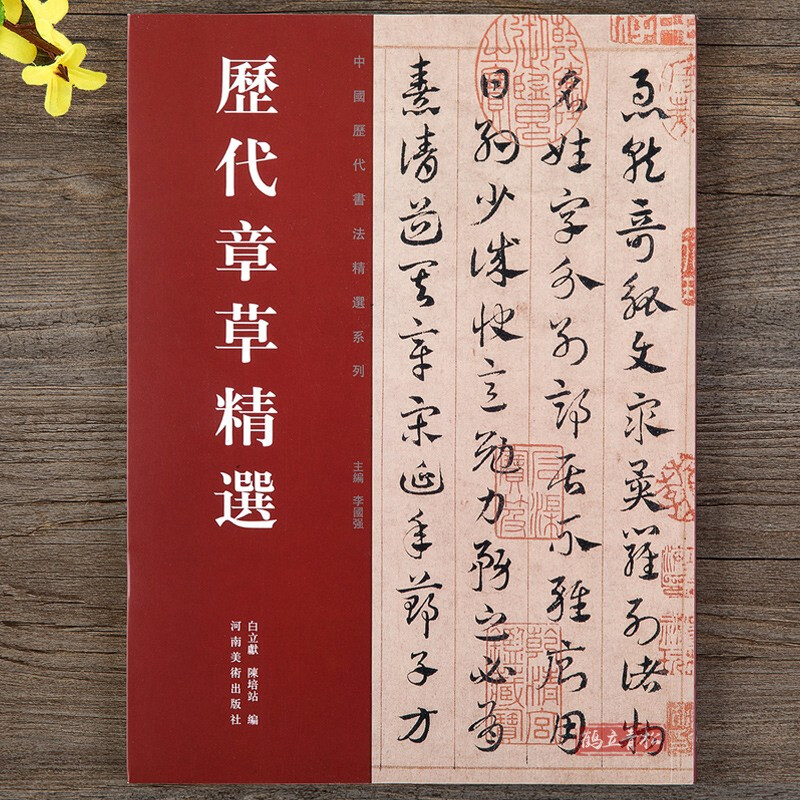 歷代章草精選
中國歷代書法精選系列
主編 李國强
白立獻 陳培站 編
河南美術出版社
急就奇觚與衆異羅列諸物
名姓字分別部居不雜廁用
日約少誠快意勉力務之必有
憙請道其章宋延年鄭子方
鹤立青松